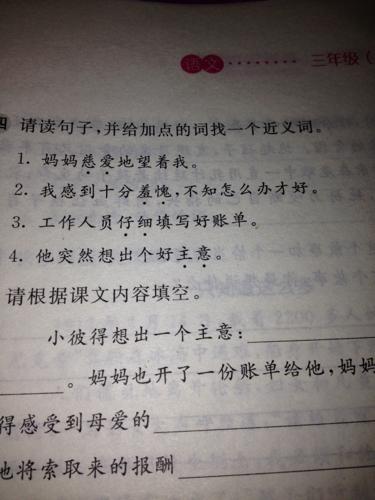 语文········三年级(
四 请读句子,并给加点的词找一个近义词。
1. 妈妈慈爱地望着我。
2. 我感到十分羞愧,不知怎么办才好。
3. 工作人员仔细填写好账单。
4. 他突然想出个好主意。
请根据课文内容填空。
小彼得想出一个主意:
。妈妈也开了一份账单给他,妈妈
得感受到母爱的
他将索取来的报酬